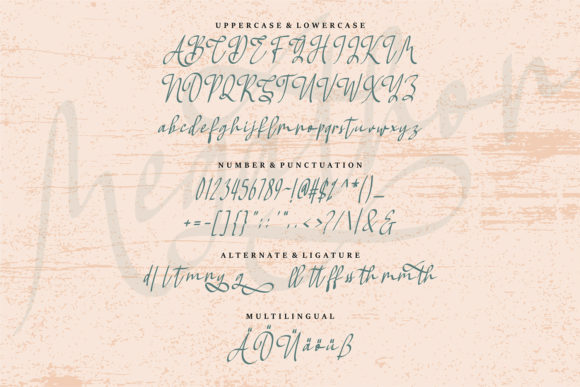 UPPERCASE & LOWERCASE
ABCDEFGHIJKLM
NOPQRSTUVWXYZ
abcdefghijklmnopqrstuvwxyz
NUMBER & PUNCTUATION
0123456789~!@#$% ^*()_
+=-[]{}";:'",.<>?/\|&
ALTERNATE & LIGATURE
d l t m n y g ll tt ff ss th mm th
MULTILINGUAL
ÄÖÜäöüß